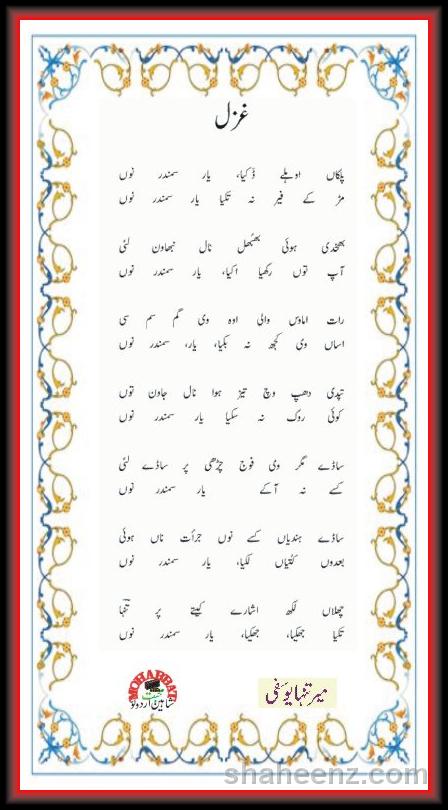 غزل
پلکاں اوہلے ڈکیا، یار سمندر نوں
مڑ کے فیر نہ تکیا یار سمندر نوں
بھخدی ہوئی بھبھل نال نبھاون لئی
آپ توں رکھیا اکیا، یار سمندر نوں
رات اماوس والی اوہ وی گم سم سی
اساں وی کجھ نہ بکیا، یار، سمندر نوں
تپدی دھپ وچ تیز ہوا نال جاون توں
کوئی روک نہ سکیا یار سمندر نوں
ساڈے مگر وی فوج چڑھی پر ساڈے لئی
کسے نہ آکے یار سمندر نوں
ساڈے ہندیاں کسے نوں جرأت ناں ہوئی
بعدوں کتیاں لکیا، یار سمندر نوں
چھلاں لکھ اشارے کیتے پر تنہا
تکیا جھکیا، جھکیا، یار سمندر نوں
میر تنہا یوسفی
MOHABBAT
محبت
شاہین اردو نو
shaheenz.com